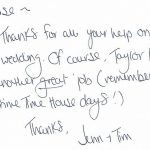 Thanks for all your help on
wedding. Of course, Taylor
another great job (remember
Time House days!)
Thanks,
Jenn + Tom